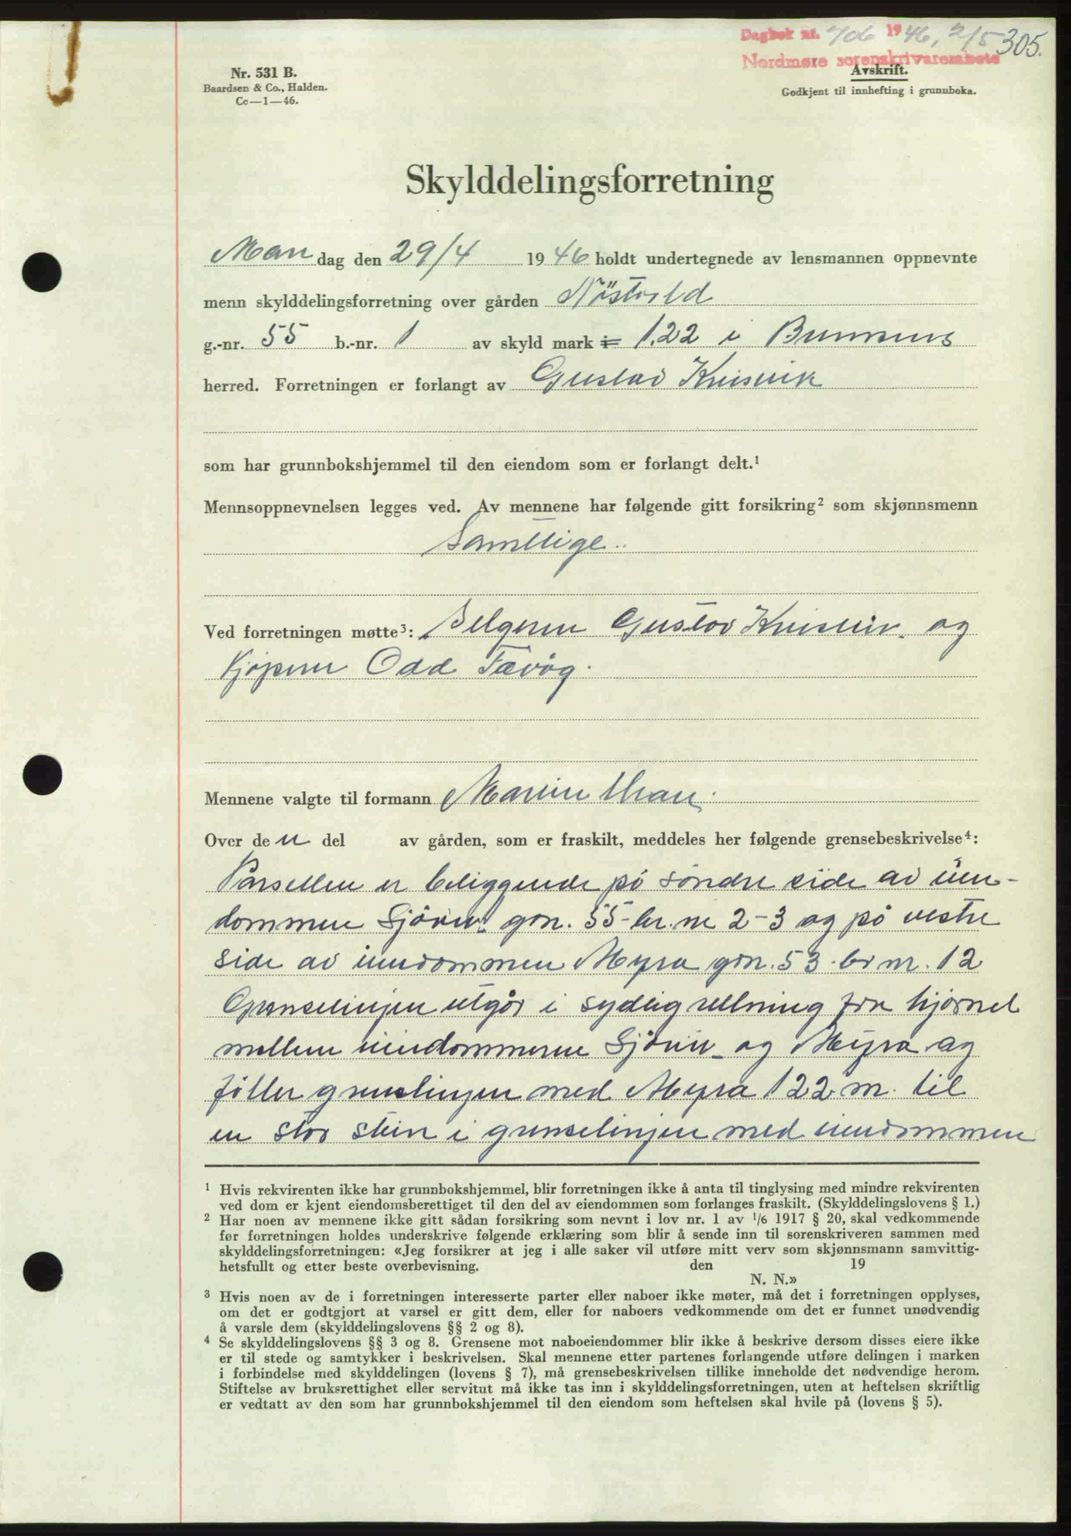 Dagbok nr. 706 1946, 2/5 305.
Nordmøre sorenskriverembete
Nr. 531 B.
Baardsen & Co., Halden.
Cc—1—46.
Avskrift.
Godkjent til innhefting i grunnboka.
Skylddelingsforretning
Man dag den 29/4 1946 holdt undertegnede av lensmannen oppnevnte
menn skylddelingsforretning over gården
g.-nr. 55 b.-nr. 1 av skyld mark 1.22 i
herred. Forretningen er forlangt av Gustav
som har grunnbokshjemmel til den eiendom som er forlangt delt.¹
Mennsoppnevnelsen legges ved. Av mennene har følgende gitt forsikring² som skjønnsmenn
Samtlige.
Ved forretningen møtte³: Selgeren Gustav og
kjøperen Odd Tævåg.
Mennene valgte til formann Martin
Over de n del av gården, som er fraskilt, meddeles her følgende grensebeskrivelse⁴:
Parsellen er beliggende på søndre side av eien-
dommen gnr. 55 - br. nr 2-3 og på vestre
side av eiendommen Myra gnr. 53 br nr. 12
Grenselinjen utgår i sydlig retning fra hjørnet
mellem eiendommene og Myra og
føller grenselinjen med Myra 122 m. til
en stor stein i grenselinjen med eiendommen
¹ Hvis rekvirenten ikke har grunnbokshjemmel, blir forretningen ikke å anta til tinglysing med mindre rekvirenten
ved dom er kjent eiendomsberettiget til den del av eiendommen som forlanges fraskilt. (Skylddelingslovens § 1.)
² Har noen av mennene ikke gitt sådan forsikring som nevnt i lov nr. 1 av 1/6 1917 § 20, skal vedkommende
før forretningen holdes underskrive følgende erklæring som blir å sende inn til sorenskriveren sammen med
skylddelingsforretningen: «Jeg forsikrer at jeg i alle saker vil utføre mitt verv som skjønnsmann samvittig-
hetsfullt og etter beste overbevisning. den 19
N. N.»
³ Hvis noen av de i forretningen interesserte parter eller naboer ikke møter, må det i forretningen opplyses,
om det er godtgjort at varsel er gitt dem, eller for naboers vedkommende om det er funnet unødvendig
å varsle dem (skylddelingslovens §§ 2 og 8).
⁴ Se skylddelingslovens §§ 3 og 8. Grensene mot naboeiendommer blir ikke å beskrive dersom disses eiere ikke
er til stede og samtykker i beskrivelsen. Skal mennene etter partenes forlangende utføre delingen i marken
i forbindelse med skylddelingen (lovens § 7), må grensebeskrivelsen tillike inneholde det nødvendige herom.
Stiftelse av bruksrettighet eller servitut må ikke tas inn i skylddelingsforretningen, uten at heftelsen skriftlig
er vedtatt av den som har grunnbokshjemmel til den eiendom som heftelsen skal hvile på (lovens § 5).